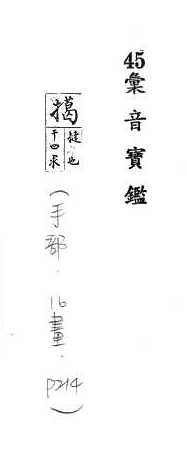 45彙音寶鑑
擖
也
干四求
(手部.16畫.P214)